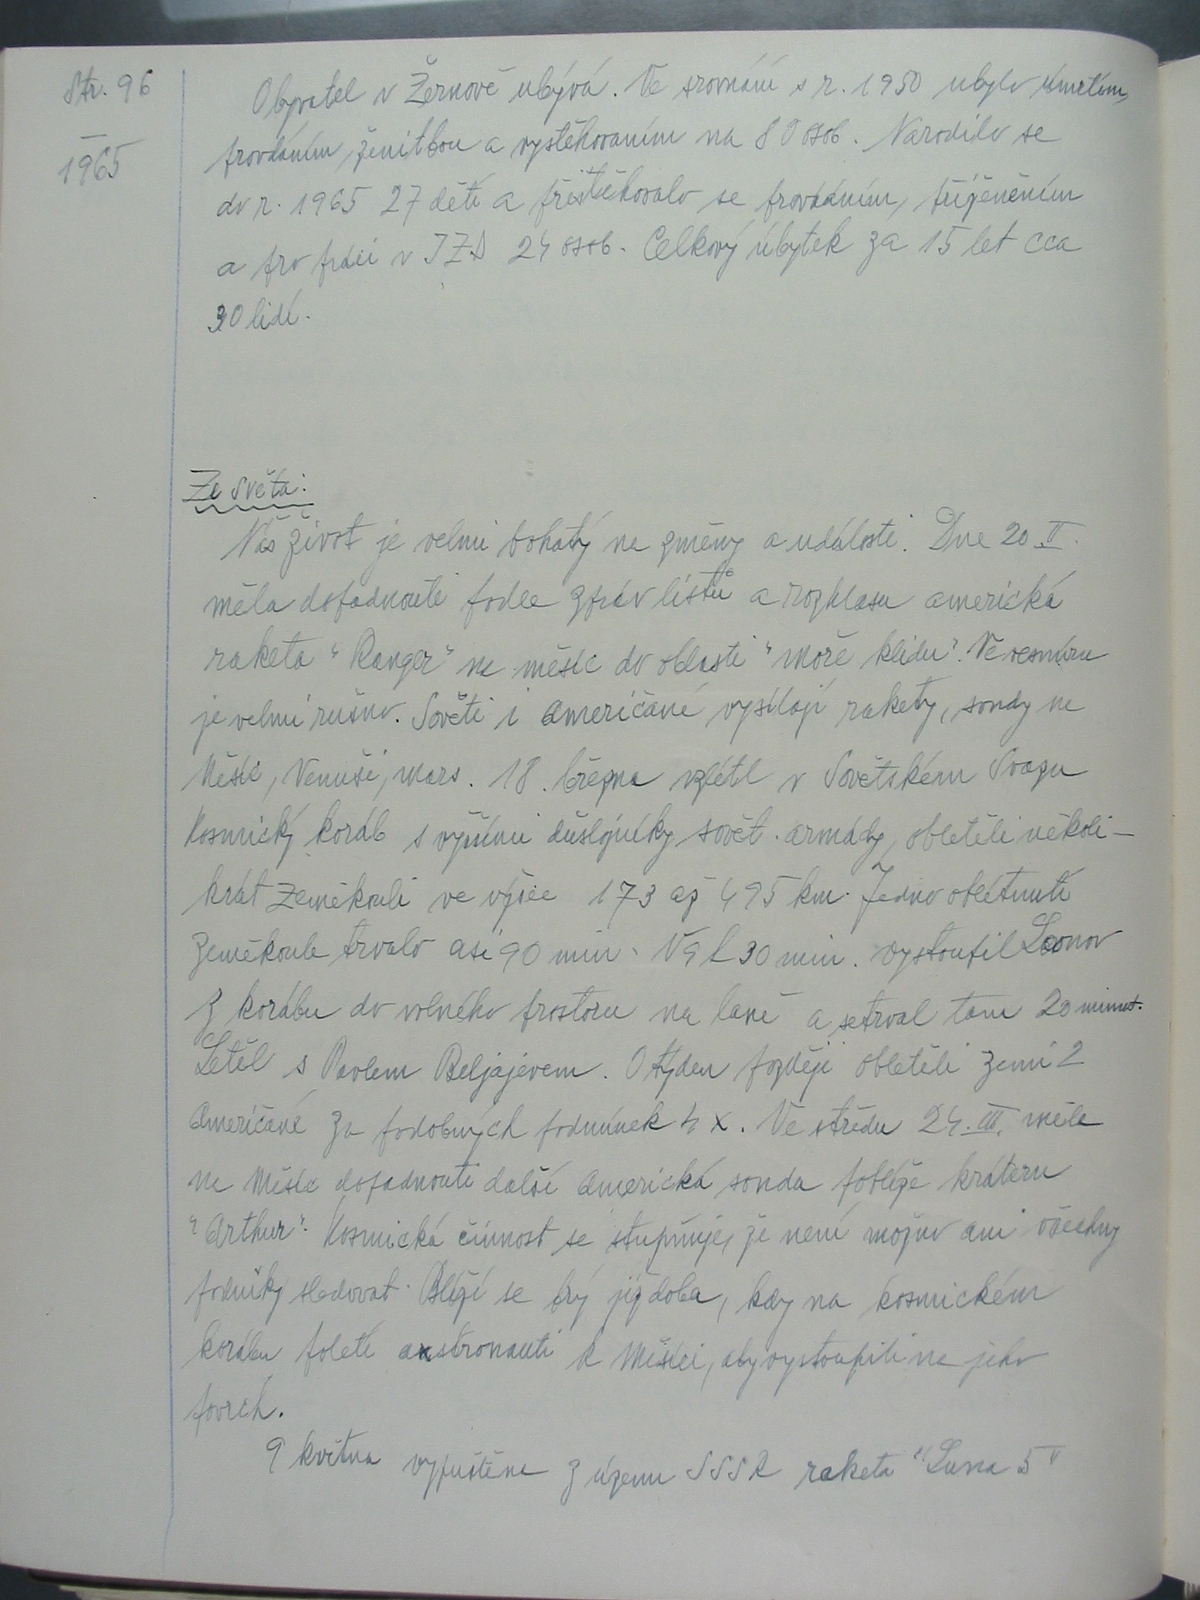 Str. 96
—
1965
Obyvatel v Žernově ubývá. Ve srovnání s r. 1950 ubylo úmrtím,
provdáním, ženitbou a vystěhovaním na 80 osob. Narodilo se
do r. 1965 27 dětí a přistěhovalo se provdáním, přiženěním
a pro práci v JZD 24 osob. Celkový úbytek za 15 let cca
30 lidí.
Ze světa:
Náš život je velmi bohatý na změny a události. Dne 20 II.
měla dopadnouti podle zpráv listů a rozhlasu americká
raketa "Ranger" na měsíc do oblasti "moře klidu". Ve vesmíru
je velmi rušno. Sověti i Američané vysílají rakety, sondy na
Měsíc, Venuši, Mars. 18. března vzlétl v Sovětském Svazu
kosmický koráb s vyššími důstojníky sovět. armády, obletěli několi-
krát Zeměkouli ve výšce 173 až 495 km. Jedno oblétnutí
zeměkoule trvalo asi 90 min. V 9 h 30 min. vystoupil Leonov
z korábu do volného prostoru na laně a setrval tam 20 minut.
Letěl s Pavlem Beljajevem. O týden později obletěli zemi 2
Američané za podobných podmínek 4 x. Ve středu 24. III. měla
na Měsíc dopadnouti další americká sonda poblíže kráteru
"Arthur". Kosmická činnost se stupňuje, že není možno ani všechny
podniky sledovat. Blíží se prý již doba, kdy na kosmickém
korábu poletí astronauti k Měsíci, aby vystoupili na jeho
povrch.
9 května vypuštěna z území SSSR raketa "Luna 5"